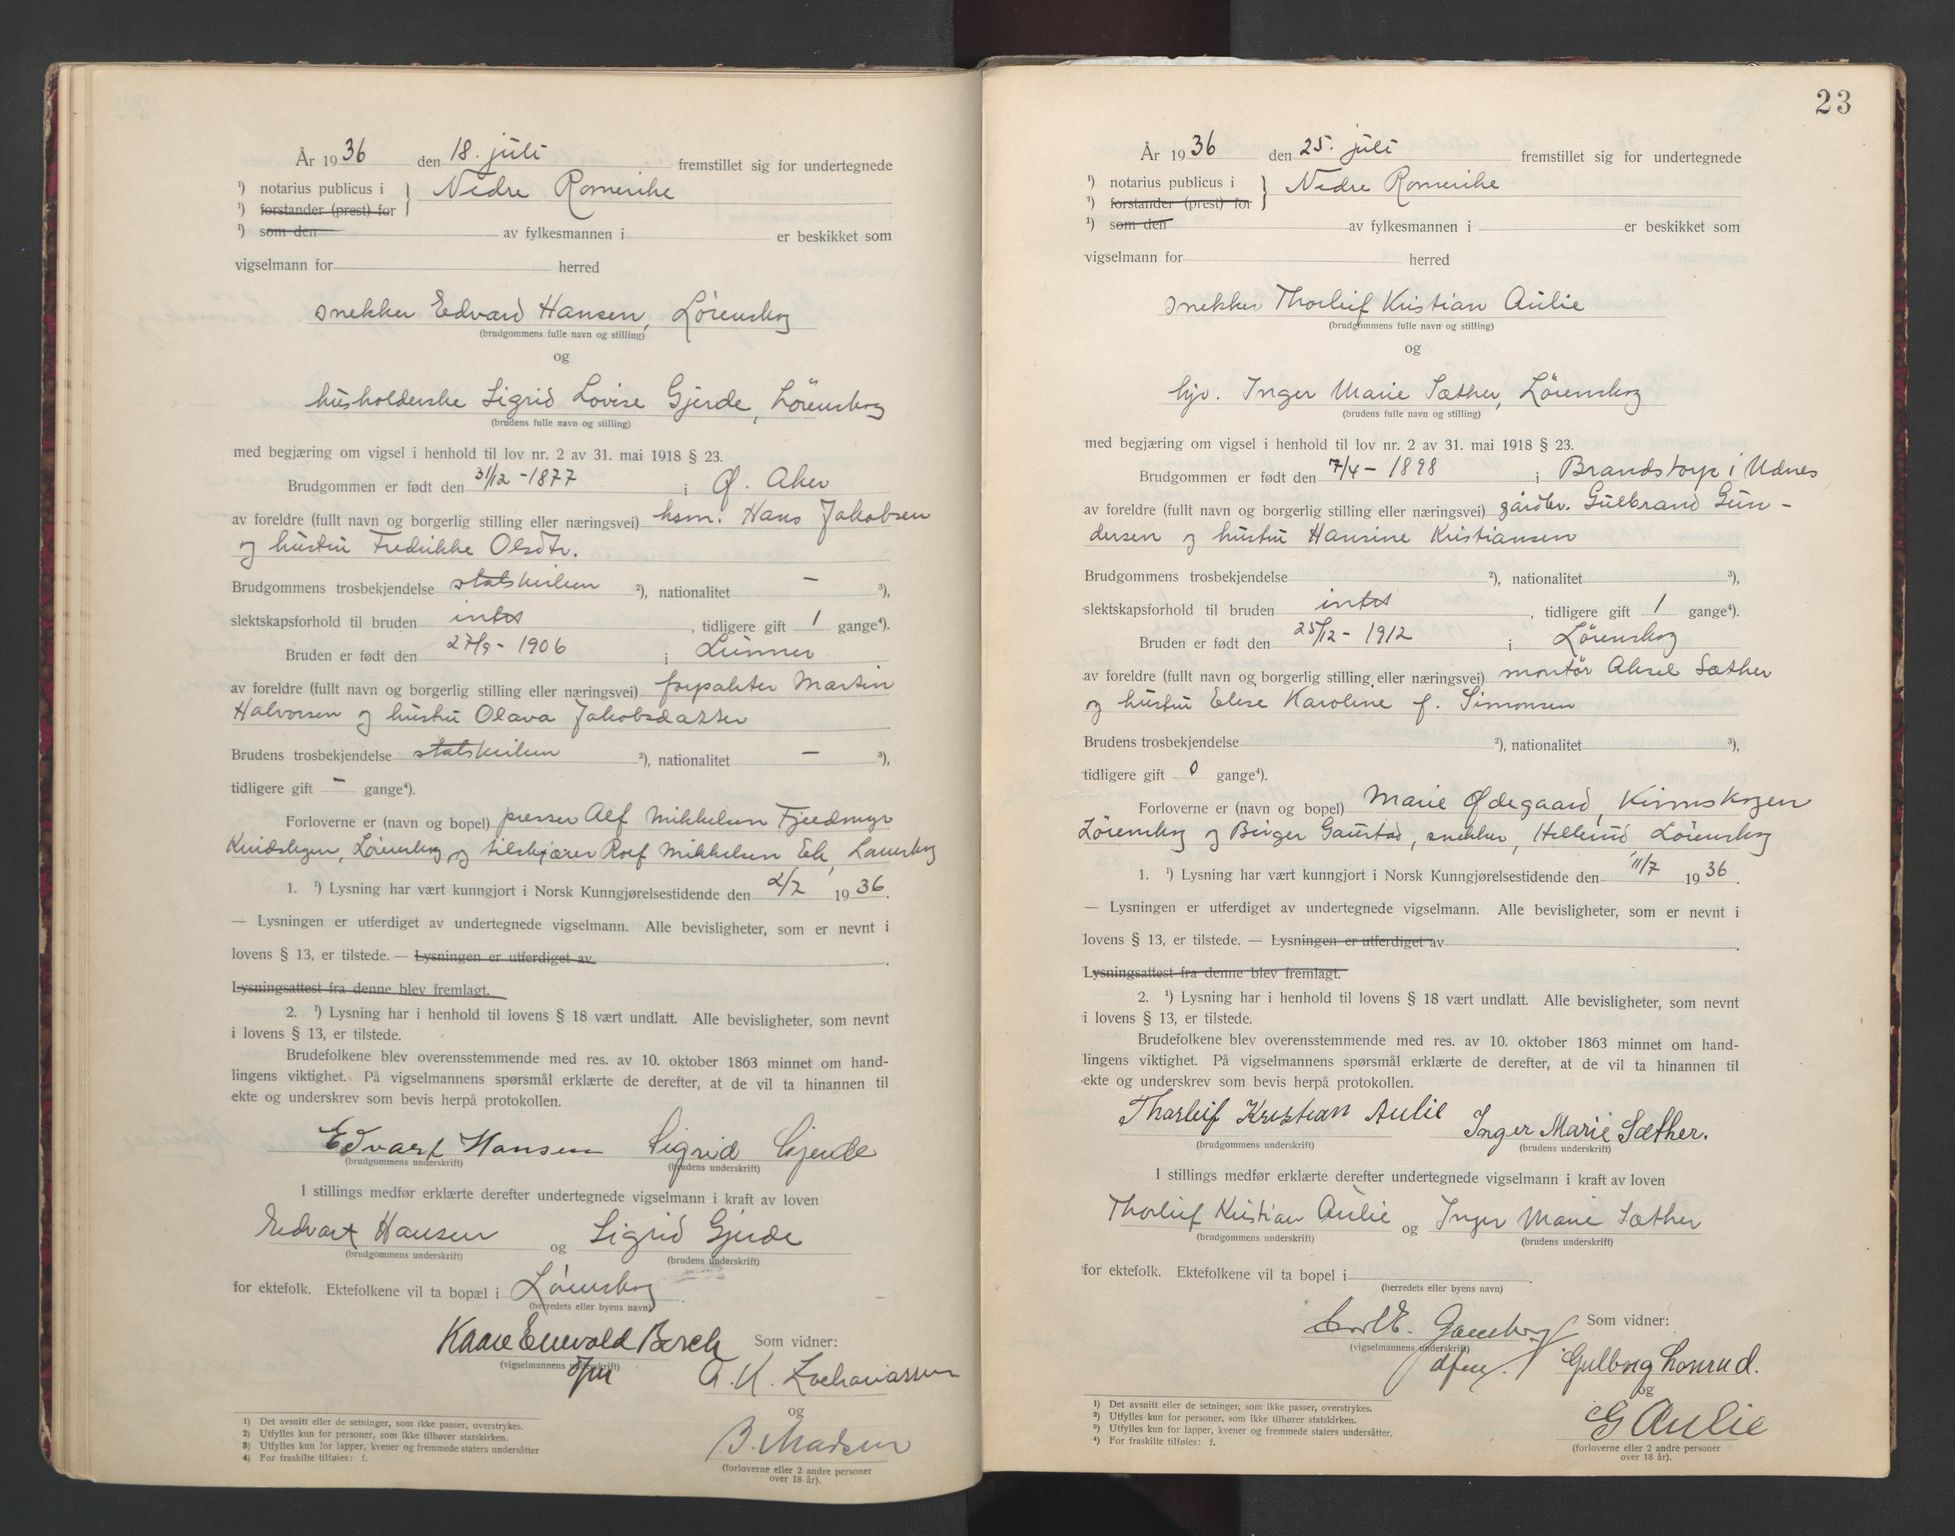 År 1936 den 18. juli fremstillet sig for undertegnede
¹) notarius publicus i } Nedre Romerike
¹) forstander (prest) for
¹) som den av fylkesmannen i er beskikket som
vigselmann for herred
snekker Edvard Hansen, Lørenskog
(brudgommens fulle navn og stilling)
og
husholderske Sigrid Lovise Gjerde, Lørenskog
(brudens fulle navn og stilling)
med begjæring om vigsel i henhold til lov nr. 2 av 31. mai 1918 § 23.
Brudgommen er født den 31/12 - 1877 i Ø. Aker
av foreldre (fullt navn og borgerlig stilling eller næringsvei) hsm. Hans Jakobsen
og hustru Fredrikke Olsdtr.
Brudgommens trosbekjendelse statskirken ²), nationalitet — ³),
slektskapsforhold til bruden intet, tidligere gift 1 gange⁴).
Bruden er født den 27/9 - 1906 i Lunner
av foreldre (fullt navn og borgerlig stilling eller næringsvei) forpakter Martin
Halvorsen og hustru Olava Jakobsdatter
Brudens trosbekjendelse statskirken ²), nationalitet — ³),
tidligere gift - gange⁴).
Forloverne er (navn og bopel) presser Alf Mikkelsen Fjeldmyr
Lørenskog og tilskjærer Rolf Mikkelsen Ek,
1. ¹) Lysning har vært kunngjort i Norsk Kunngjørelsestidende den 2/7 1936.
— Lysningen er utferdiget av undertegnede vigselmann. Alle bevisligheter, som er nevnt i
lovens § 13, er tilstede. — Lysningen er utferdiget av.
Lysningsattest fra denne blev fremlagt.
2. ¹) Lysning har i henhold til lovens § 18 vært undlatt. Alle bevisligheter, som nevnt
i lovens § 13, er tilstede.
Brudefolkene blev overensstemmende med res. av 10. oktober 1863 minnet om hand-
lingens viktighet. På vigselmannens spørsmål erklærte de derefter, at de vil ta hinannen til
ekte og underskrev som bevis herpå protokollen.
Edvart Hansen Sigrid Gjerde
(brudgommens underskrift) (brudens underskrift)
I stillings medfør erklærte derefter undertegnede vigselmann i kraft av loven
Edvart Hansen og Sigrid Gjerde
(brudgommens underskrift) (brudens underskrift)
for ektefolk. Ektefolkene vil ta bopæl i Lørenskog
(herredets eller byens navn)
Kaare Enevold Berch Som vidner:
(vigselmannens underskrift)
A. K. Zachariassen
og
B. Madsen
(forloverne eller 2 andre personer
over 18 år).
1) Det avsnitt eller de setninger, som ikke passer, overstrykes.
2) Utfylles kun for personer, som ikke tilhører statskirken.
3) Utfylles kun for lapper, kvener og fremmede staters undersåtter
4) For fraskilte tilføies: f.
23
År 1936 den 25. juli fremstillet sig for undertegnede
¹) notarius publicus i } Nedre Romerike
¹) forstander (prest) for
¹) som den av fylkesmannen i er beskikket som
vigselmann for herred
snekker Thorleif Kristian Aulie
(brudgommens fulle navn og stilling)
og
hjv. Inger Marie Sæther, Lørenskog
(brudens fulle navn og stilling)
med begjæring om vigsel i henhold til lov nr. 2 av 31. mai 1918 § 23.
Brudgommen er født den 7/4 - 1898 i Brandstorp i Udnes
av foreldre (fullt navn og borgerlig stilling eller næringsvei) gårdbr. Gulbrand Gun-
dersen og hustru Hansine Kristiansen
Brudgommens trosbekjendelse ²), nationalitet ³),
slektskapsforhold til bruden intet, tidligere gift 1 gange⁴).
Bruden er født den 25/12 - 1912 i Lørenskog
av foreldre (fullt navn og borgerlig stilling eller næringsvei) montør Aksel Sæther
og hustru Elise Karoline f. Simonsen
Brudens trosbekjendelse ²), nationalitet ³),
tidligere gift 0 gange⁴).
Forloverne er (navn og bopel) Marie Ødegaard,
Lørenskog og Birger Gaustad, snekker, Lørenskog
1. ¹) Lysning har vært kunngjort i Norsk Kunngjørelsestidende den 11/7 1936.
— Lysningen er utferdiget av undertegnede vigselmann. Alle bevisligheter, som er nevnt i
lovens § 13, er tilstede. — Lysningen er utferdiget av.
Lysningsattest fra denne blev fremlagt.
2. ¹) Lysning har i henhold til lovens § 18 vært undlatt. Alle bevisligheter, som nevnt
i lovens § 13, er tilstede.
Brudefolkene blev overensstemmende med res. av 10. oktober 1863 minnet om hand-
lingens viktighet. På vigselmannens spørsmål erklærte de derefter, at de vil ta hinannen til
ekte og underskrev som bevis herpå protokollen.
Thorleif Kristian Aulie Inger Marie Sæther.
(brudgommens underskrift) (brudens underskrift)
I stillings medfør erklærte derefter undertegnede vigselmann i kraft av loven
Thorleif Kristian Aulie og Inger Marie Sæther
(brudgommens underskrift) (brudens underskrift)
for ektefolk. Ektefolkene vil ta bopel i
(herredets eller byens navn)
Som vidner:
(vigselmannens underskrift)
Gulborg
og
G Aulie
(forloverne eller 2 andre personer
over 18 år).
1) Det avsnitt eller de setninger, som ikke passer, overstrykes.
2) Utfylles kun for personer, som ikke tilhører statskirken.
3) Utfylles kun for lapper, kvener og fremmede staters undersåtter.
4) For fraskilte tilføies: f.